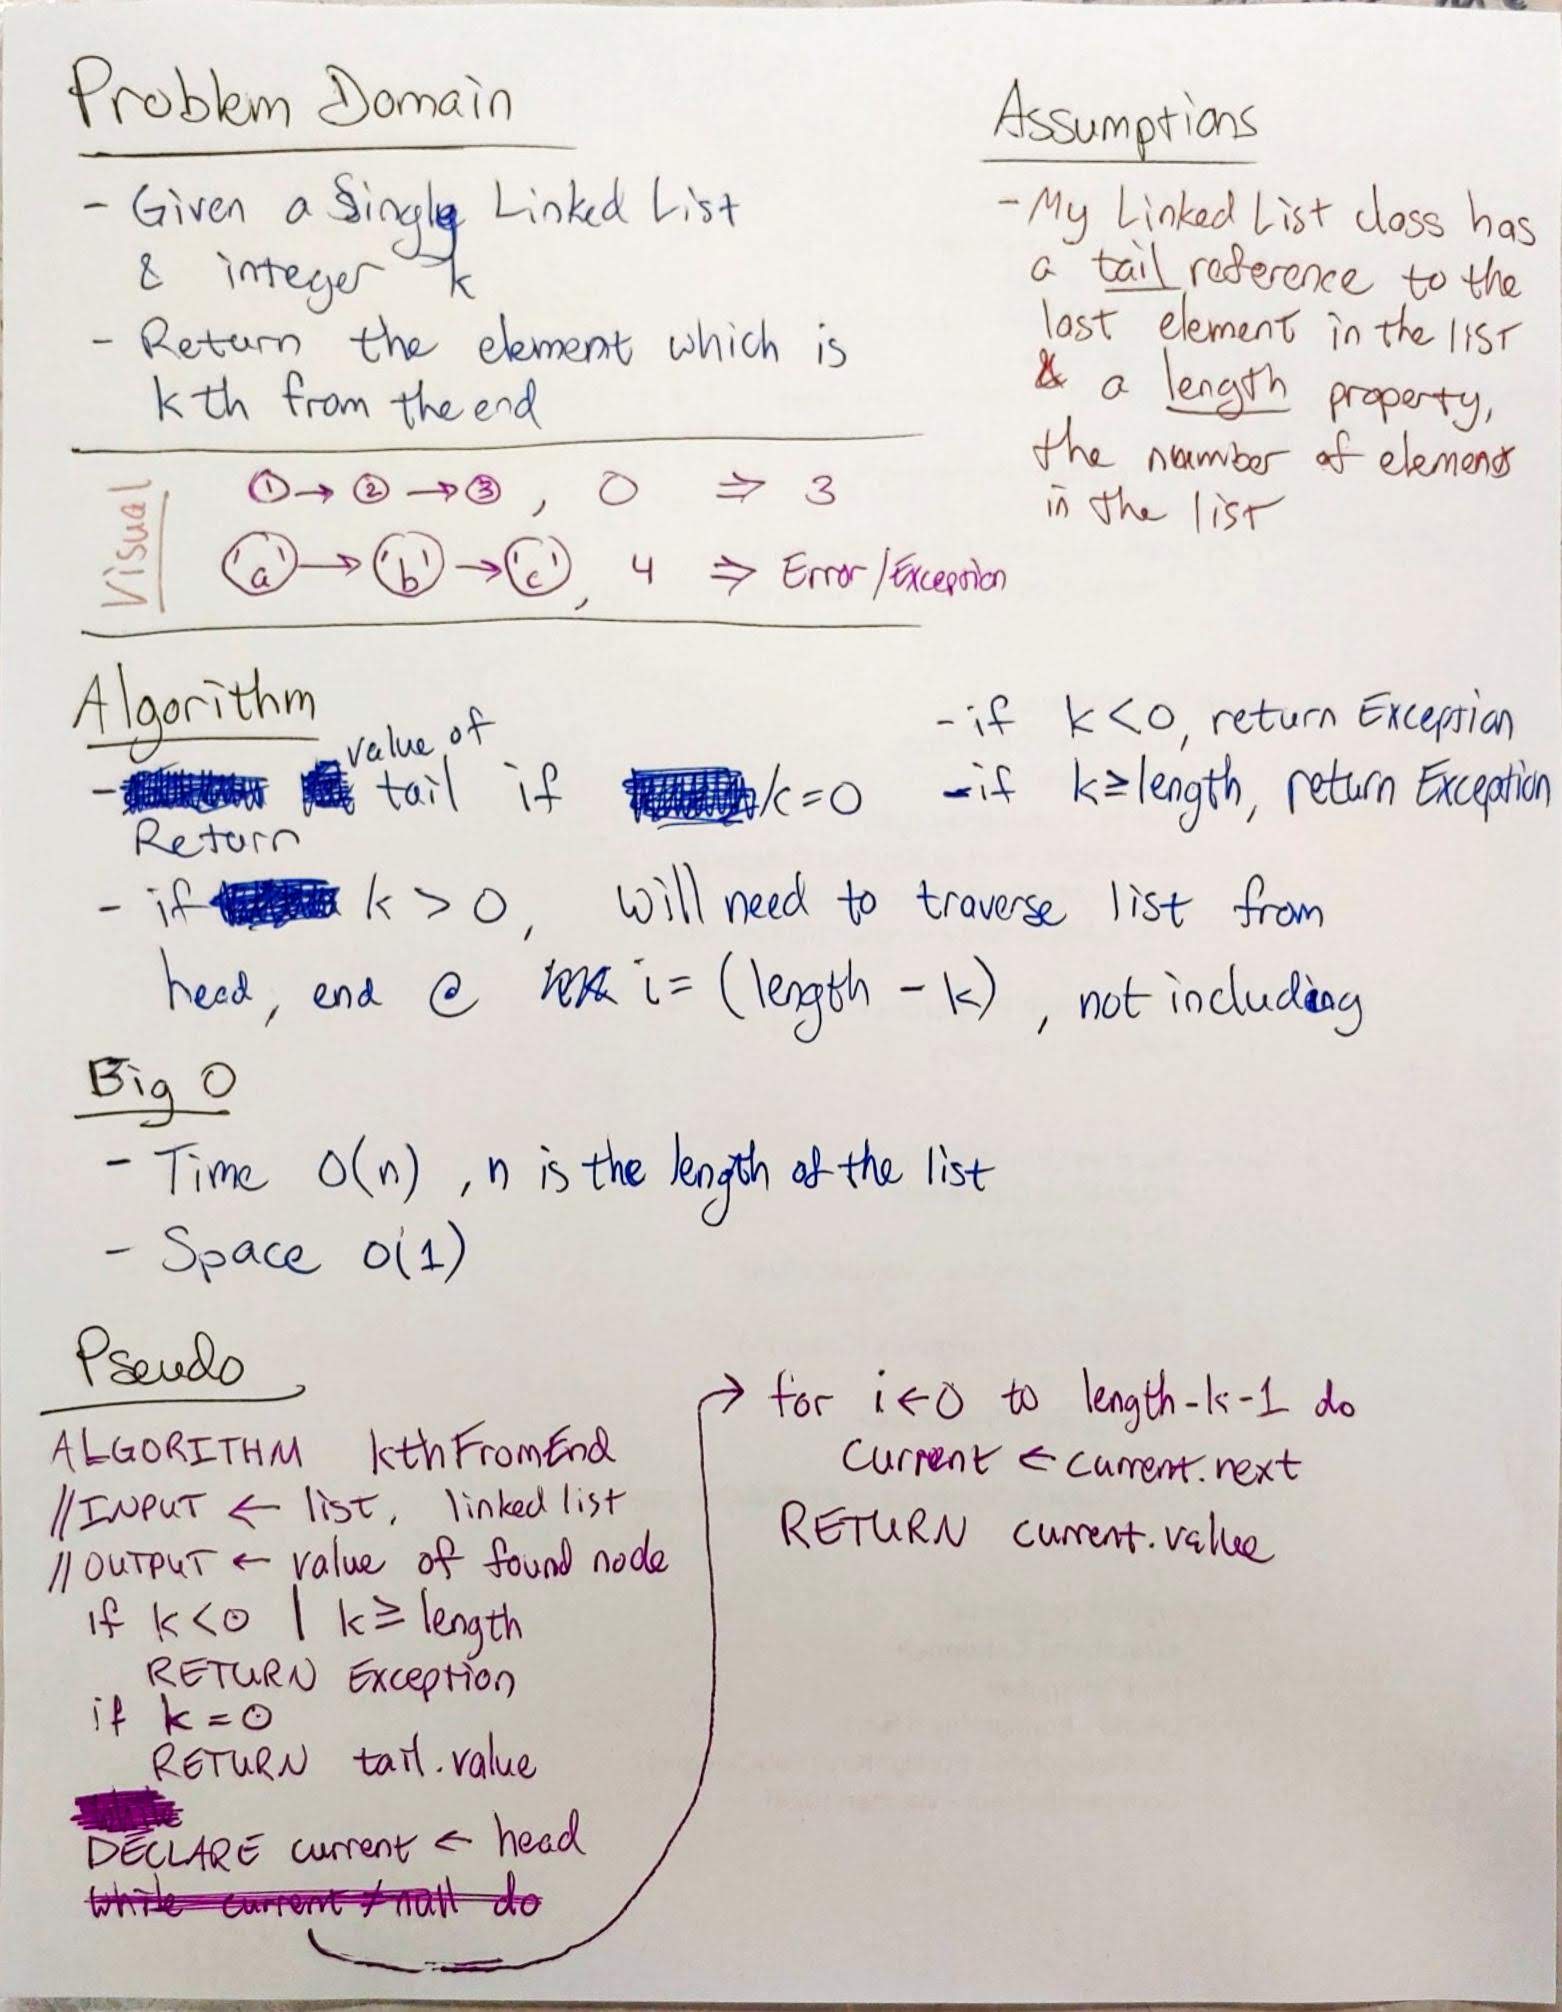 Problem Domain
- Given a Singly Linked List
& integer k
- Return the element which is
kth from the end
Assumptions
- My Linked List class has
a tail reference to the
last element in the list
& a length property,
the number of elements
in the list
Visual
1 → 2 → 3 , 0 ⇒ 3
'a' → 'b' → 'c' , 4 ⇒ Error/Exception
Algorithm
value of
- tail if k=0
Return
- if k > 0, will need to traverse list from
head, end @ i = (length - k) , not including
- if k<0, return Exception
- if k≥length, return Exception
Big O
- Time O(n) , n is the length of the list
- Space O(1)
Pseudo
ALGORITHM kthFromEnd
//INPUT ← list, linked list
//OUTPUT ← value of found node
if k<0 | k≥length
RETURN Exception
if k=0
RETURN tail.value
DECLARE current ← head
while current ≠ null do
→ for i←0 to length-k-1 do
current ← current.next
RETURN current.value